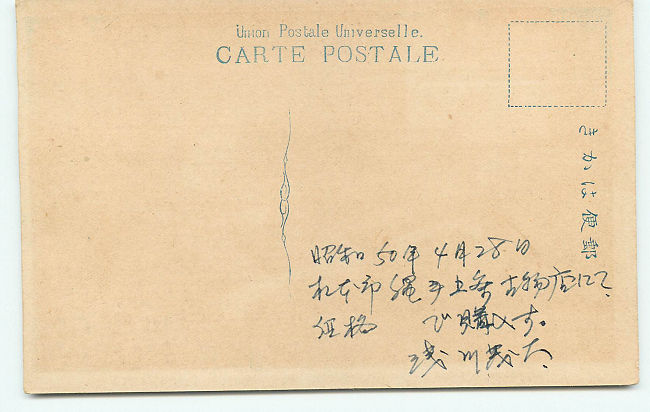 Union Postale Universelle.
CARTE POSTALE
きかは便郵
昭和50年4月28日
松本市縄手上条古物店にて、
価格 で購入す。
浅川茂